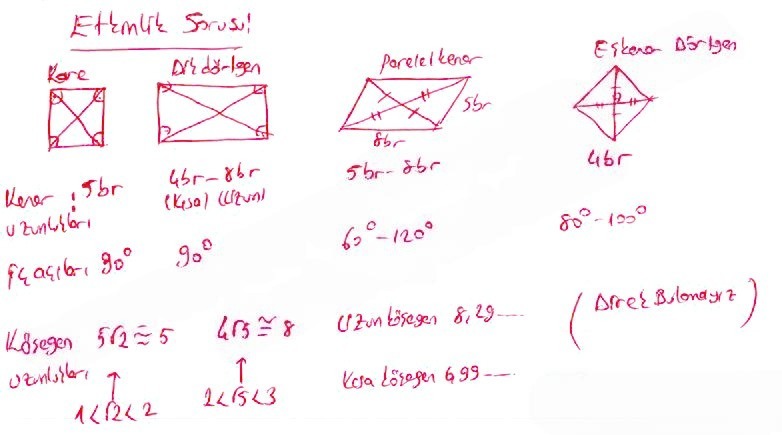 Etkinlik Sorusu!
Kare
Dikdörtgen
Paralel kenar
Eşkenar Dörtgen
5br
8br
Kenar : 5br
uzunlukları
4br - 8br
(Kısa) (Uzun)
5br - 8br
4br
İç açıları 90°
90°
60° - 120°
80° - 100°
Köşegen 5√2 ≅ 5
uzunlukları
4√5 ≅ 8
Uzun köşegen 8,29----
Kısa köşegen 6,99----
(Direk Bulamayız)
1<√2<2
2<√5<3